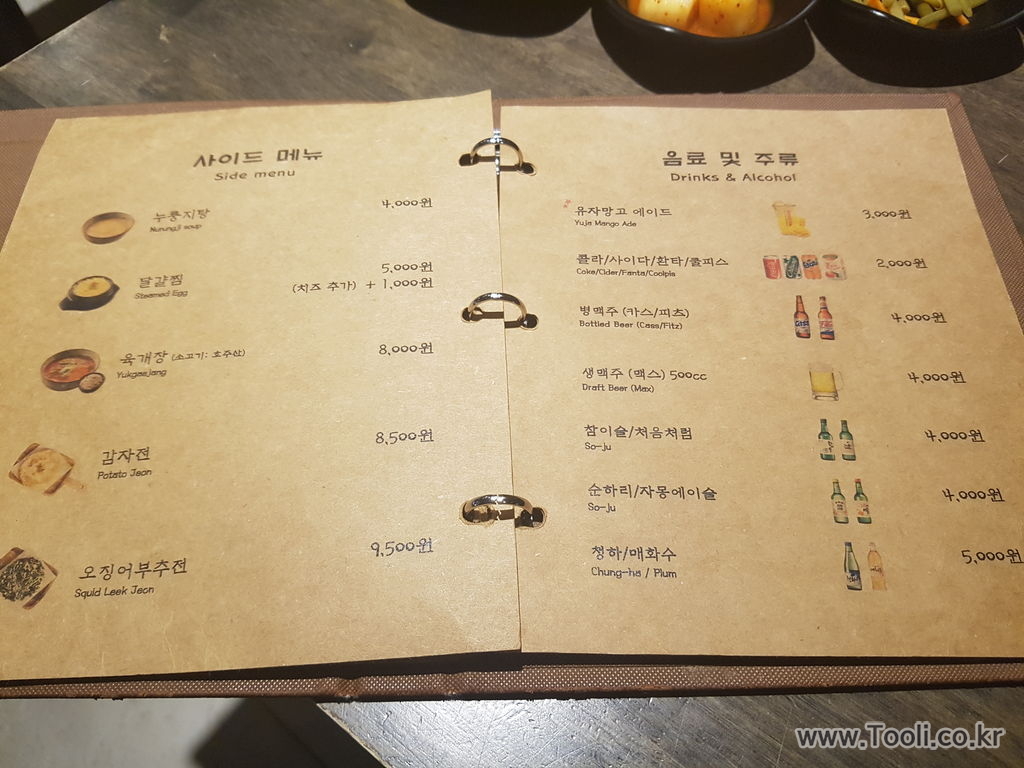 사이드 메뉴
Side menu
누룽지탕
Nurungji soup
4,000원
달걀찜
Steamed Egg
5,000원
(치즈 추가) + 1,000원
육개장 (소고기: 호주산)
Yukgaejang
8,000원
감자전
Potato Jeon
8,500원
오징어부추전
Squid Leek Jeon
9,500원
음료 및 주류
Drinks & Alcohol
유자망고 에이드
Yuja Mango Ade
3,000원
콜라/사이다/환타/쿨피스
Coke/Cider/Fanta/Coolpis
2,000원
병맥주 (카스/피츠)
Bottled Beer (Cass/Fitz)
4,000원
생맥주 (맥스) 500cc
Draft Beer (Max)
4,000원
참이슬/처음처럼
So-ju
4,000원
순하리/자몽에이슬
So-ju
4,000원
청하/매화수
Chung-ha / Plum
5,000원
www.Tooli.co.kr